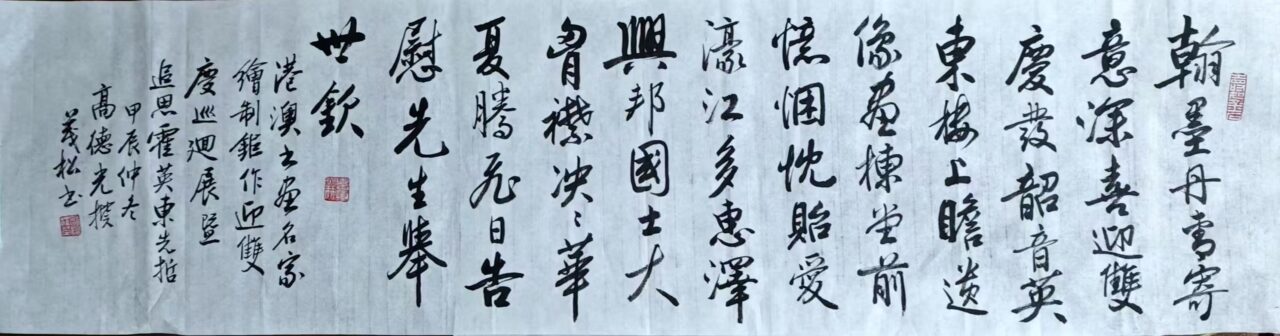 翰墨丹青寄
意深喜迎雙
慶發韶音英
東樓上瞻遺
像畫棟堂前
憶悃忱貽愛
濠江多惠澤
興邦國士大
胷襟泱〻華
夏騰飛日告
慰先生舉
世欽
港澳书畫名家
繪制鉅作迎雙
慶巡廻展暨
追思霍英東先哲
甲辰仲冬
高德光撰
義松书